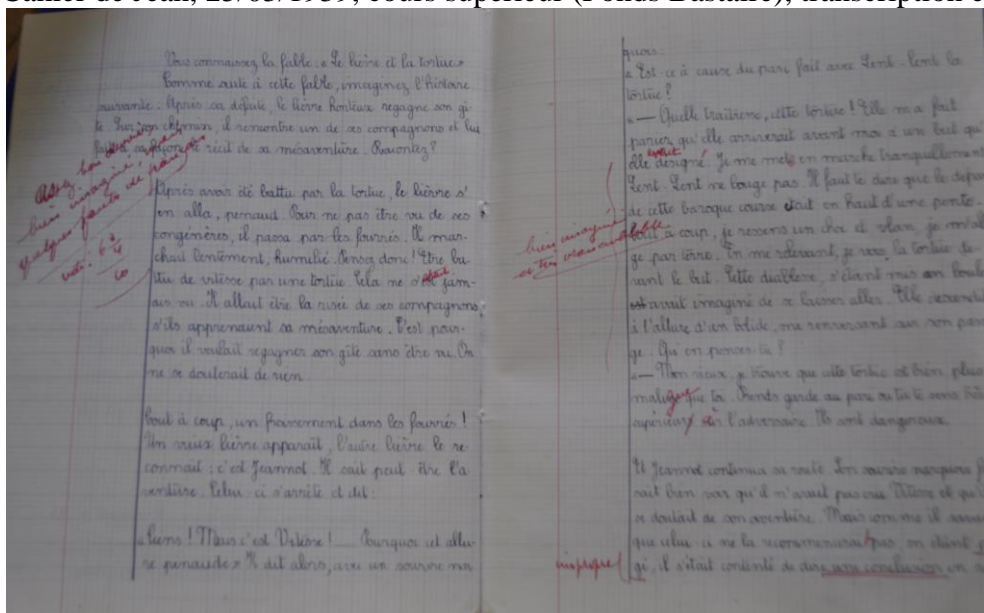 Cahier de Jean, 23/03/1939, cours supérieur (Fonds Bastaire), transcription
Vous connaissez la fable : « Le lièvre et la tortue »
Comme suite à cette fable, imaginez l'histoire
suivante. Après sa défaite, le lièvre honteux regagne son gî-
te. Sur son chemin, il rencontre un de ses compagnons et lui
fait le récit de sa mésaventure. Racontez ?
Assez bon devoir
bien imaginé,
quelques fautes de français
Après avoir été battu par la tortue, le lièvre s'
en alla, penaud. Pour ne pas être vu de ses
congénères, il passa par les fourrés. Il mar-
chait lentement, humilié. Pensez donc ! Etre bat-
tu de vitesse par une tortue. Cela ne s'était jam-
ais vu. Il allait être la risée de ses compagnons,
s'ils apprenaient sa mésaventure. C'est pour-
quoi il voulait regagner son gîte sans être vu. On
ne se douterait de rien.
Tout à coup, un froissement dans les fourrés !
Un vieux lièvre apparaît, l'autre lièvre le re-
connaît : c'est Jeannot. Il sait peut être l'a-
venture. Celui-ci s'arrête et dit :
« Tiens ! Mais c'est Vitesse ! Pourquoi cet allu-
re penaude » Il dit alors, avec un sourire nar
quois :
« Est-ce à cause du pari fait avec Lent-Lent la
tortue ?
« — Quelle traîtresse, cette tortue ! Elle m'a fait
parier qu'elle arriverait avant moi à un but qu'
elle avait désigné. Je me mets en marche tranquillement
Lent-Lent ne bouge pas. Il faut te dire que le départ
de cette baroque course était en haut d'une pente.
Tout à coup, je ressens un choc et vlan, je m'al
ge par terre. En me relevant, je vois la tortue de-
vant le but. Cette diablesse, s'étant mis en boule
avait imaginé de se laisser aller. Elle descendit
à l'allure d'un bolide, me renversant sur son passa
ge. Qu'en penses-tu ?
bien imaginé
et très vraisemblable
« — Mon vieux, je trouve que cette tortue est bien plus
maligne que toi. Prends garde au pari où tu te sens très
supérieur à l'adversaire. Ils sont dangereux.
Et Jeannot continua sa route. Son sourire narquois
sait bien voir qu'il n'avait pas cru Vitesse et qu'
se doutait de son aventure. Mais comme il savait
que celui-ci ne la recommencerait pas, en étant
gé, il s'était contenté de dire une conclusion en
impropre